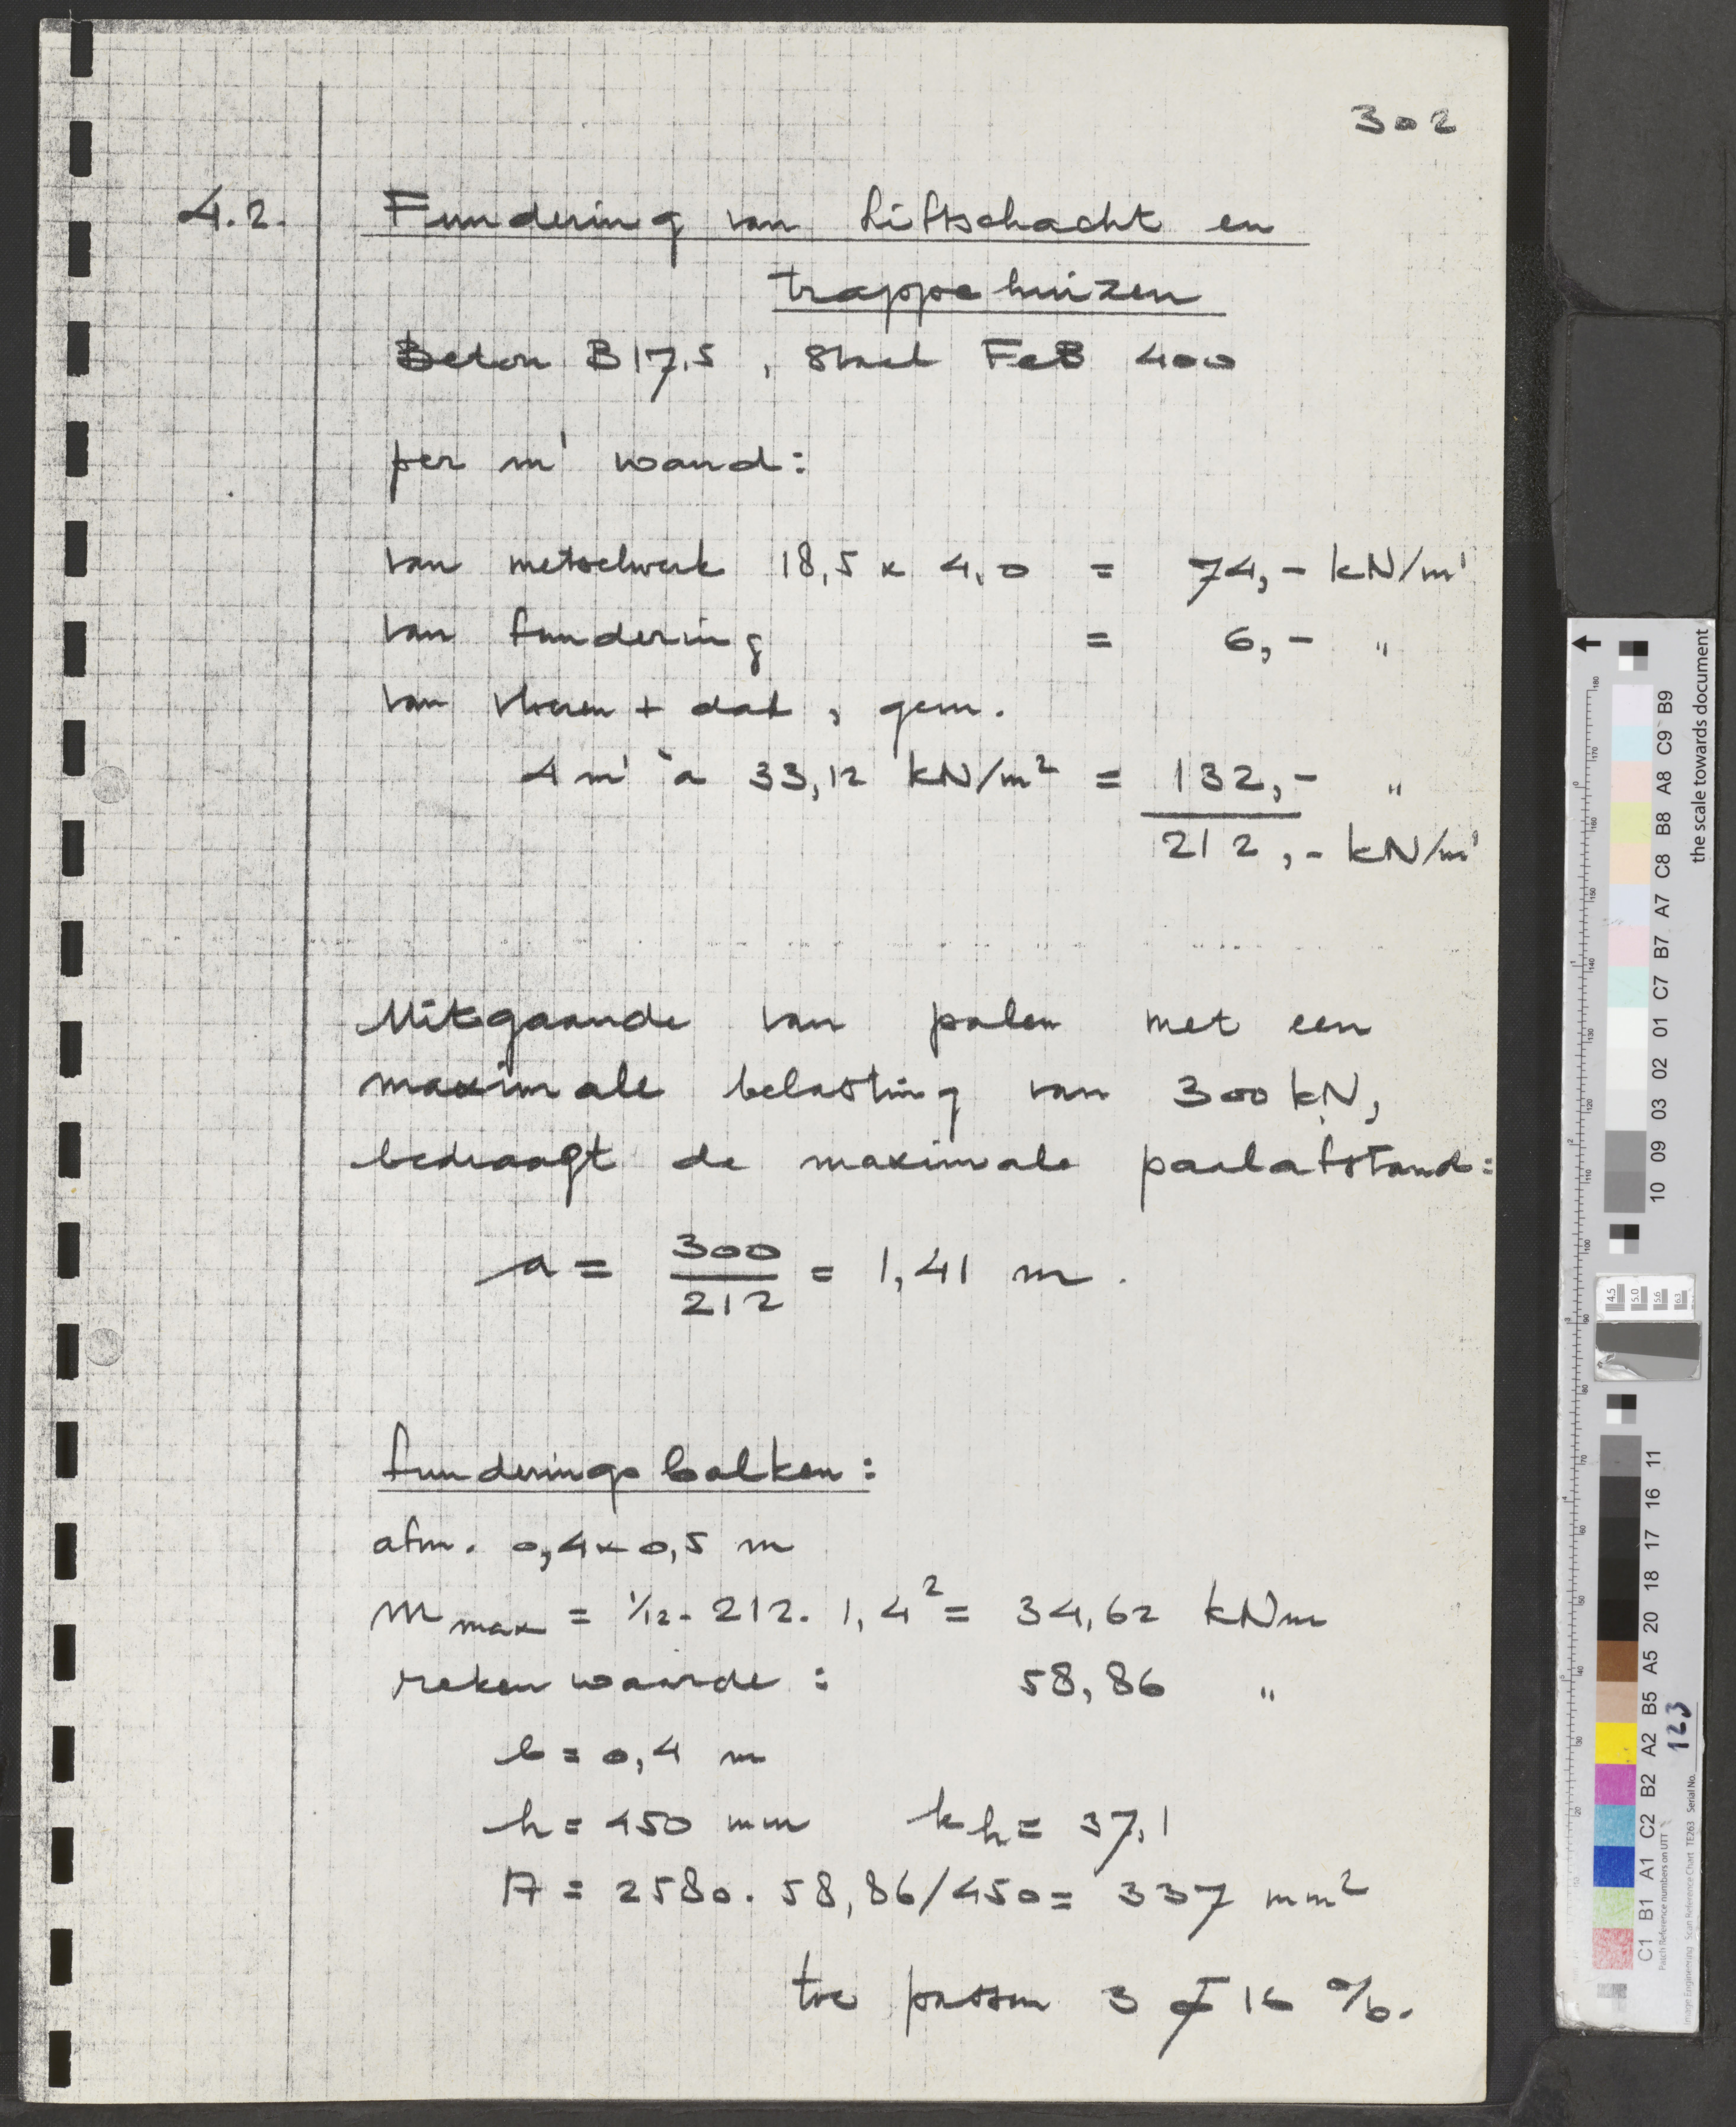 302
4.2. Fundering van liftschacht en
trappehuizen
Beton B17,5, Staal FeB 400
per m' wand:
van metselwerk 18,5 x 4,0 = 74,- kN/m'
van fundering = 6,- "
van vloeren + dak, gem.
4 m' à 33,12 kN/m² = 132,- "
212,- kN/m'
Uitgaande van palen met een
maximale belasting van 300 kN,
bedraagt de maximale paalafstand:
a = 300/212 = 1,41 m.
funderingsbalken:
afm. 0,4 x 0,5 m
M max = 1/12 . 212 . 1,4² = 34,62 kNm
rekenwaarde: 58,86 "
b = 0,4 m
h = 450 mm kh = 37,1
A = 2580 . 58,86/450 = 337 mm²
toe passen 3 ø 16 o/b.
the scale towards document
C1 B1 A1 C2 B2 A2 B5 A5 20 18 17 16 11
10 09 03 02 01 C7 B7 A7 C8 B8 A8 C9 B9
4.5 5.0 5.6 6.3
Image Engineering Scan Reference Chart TE263 Serial No. 123
Patch Reference numbers on UTT